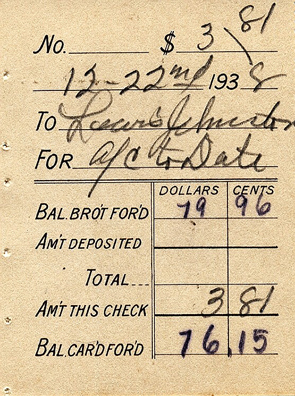 No. $ 3 81
12-22nd 1938
To Johnston
For a/c to Date
DOLLARS CENTS
BAL. BRO'T FOR'D 79 96
AM'T DEPOSITED
TOTAL...
AM'T THIS CHECK 3 81
BAL. CAR'D FOR'D 76.15